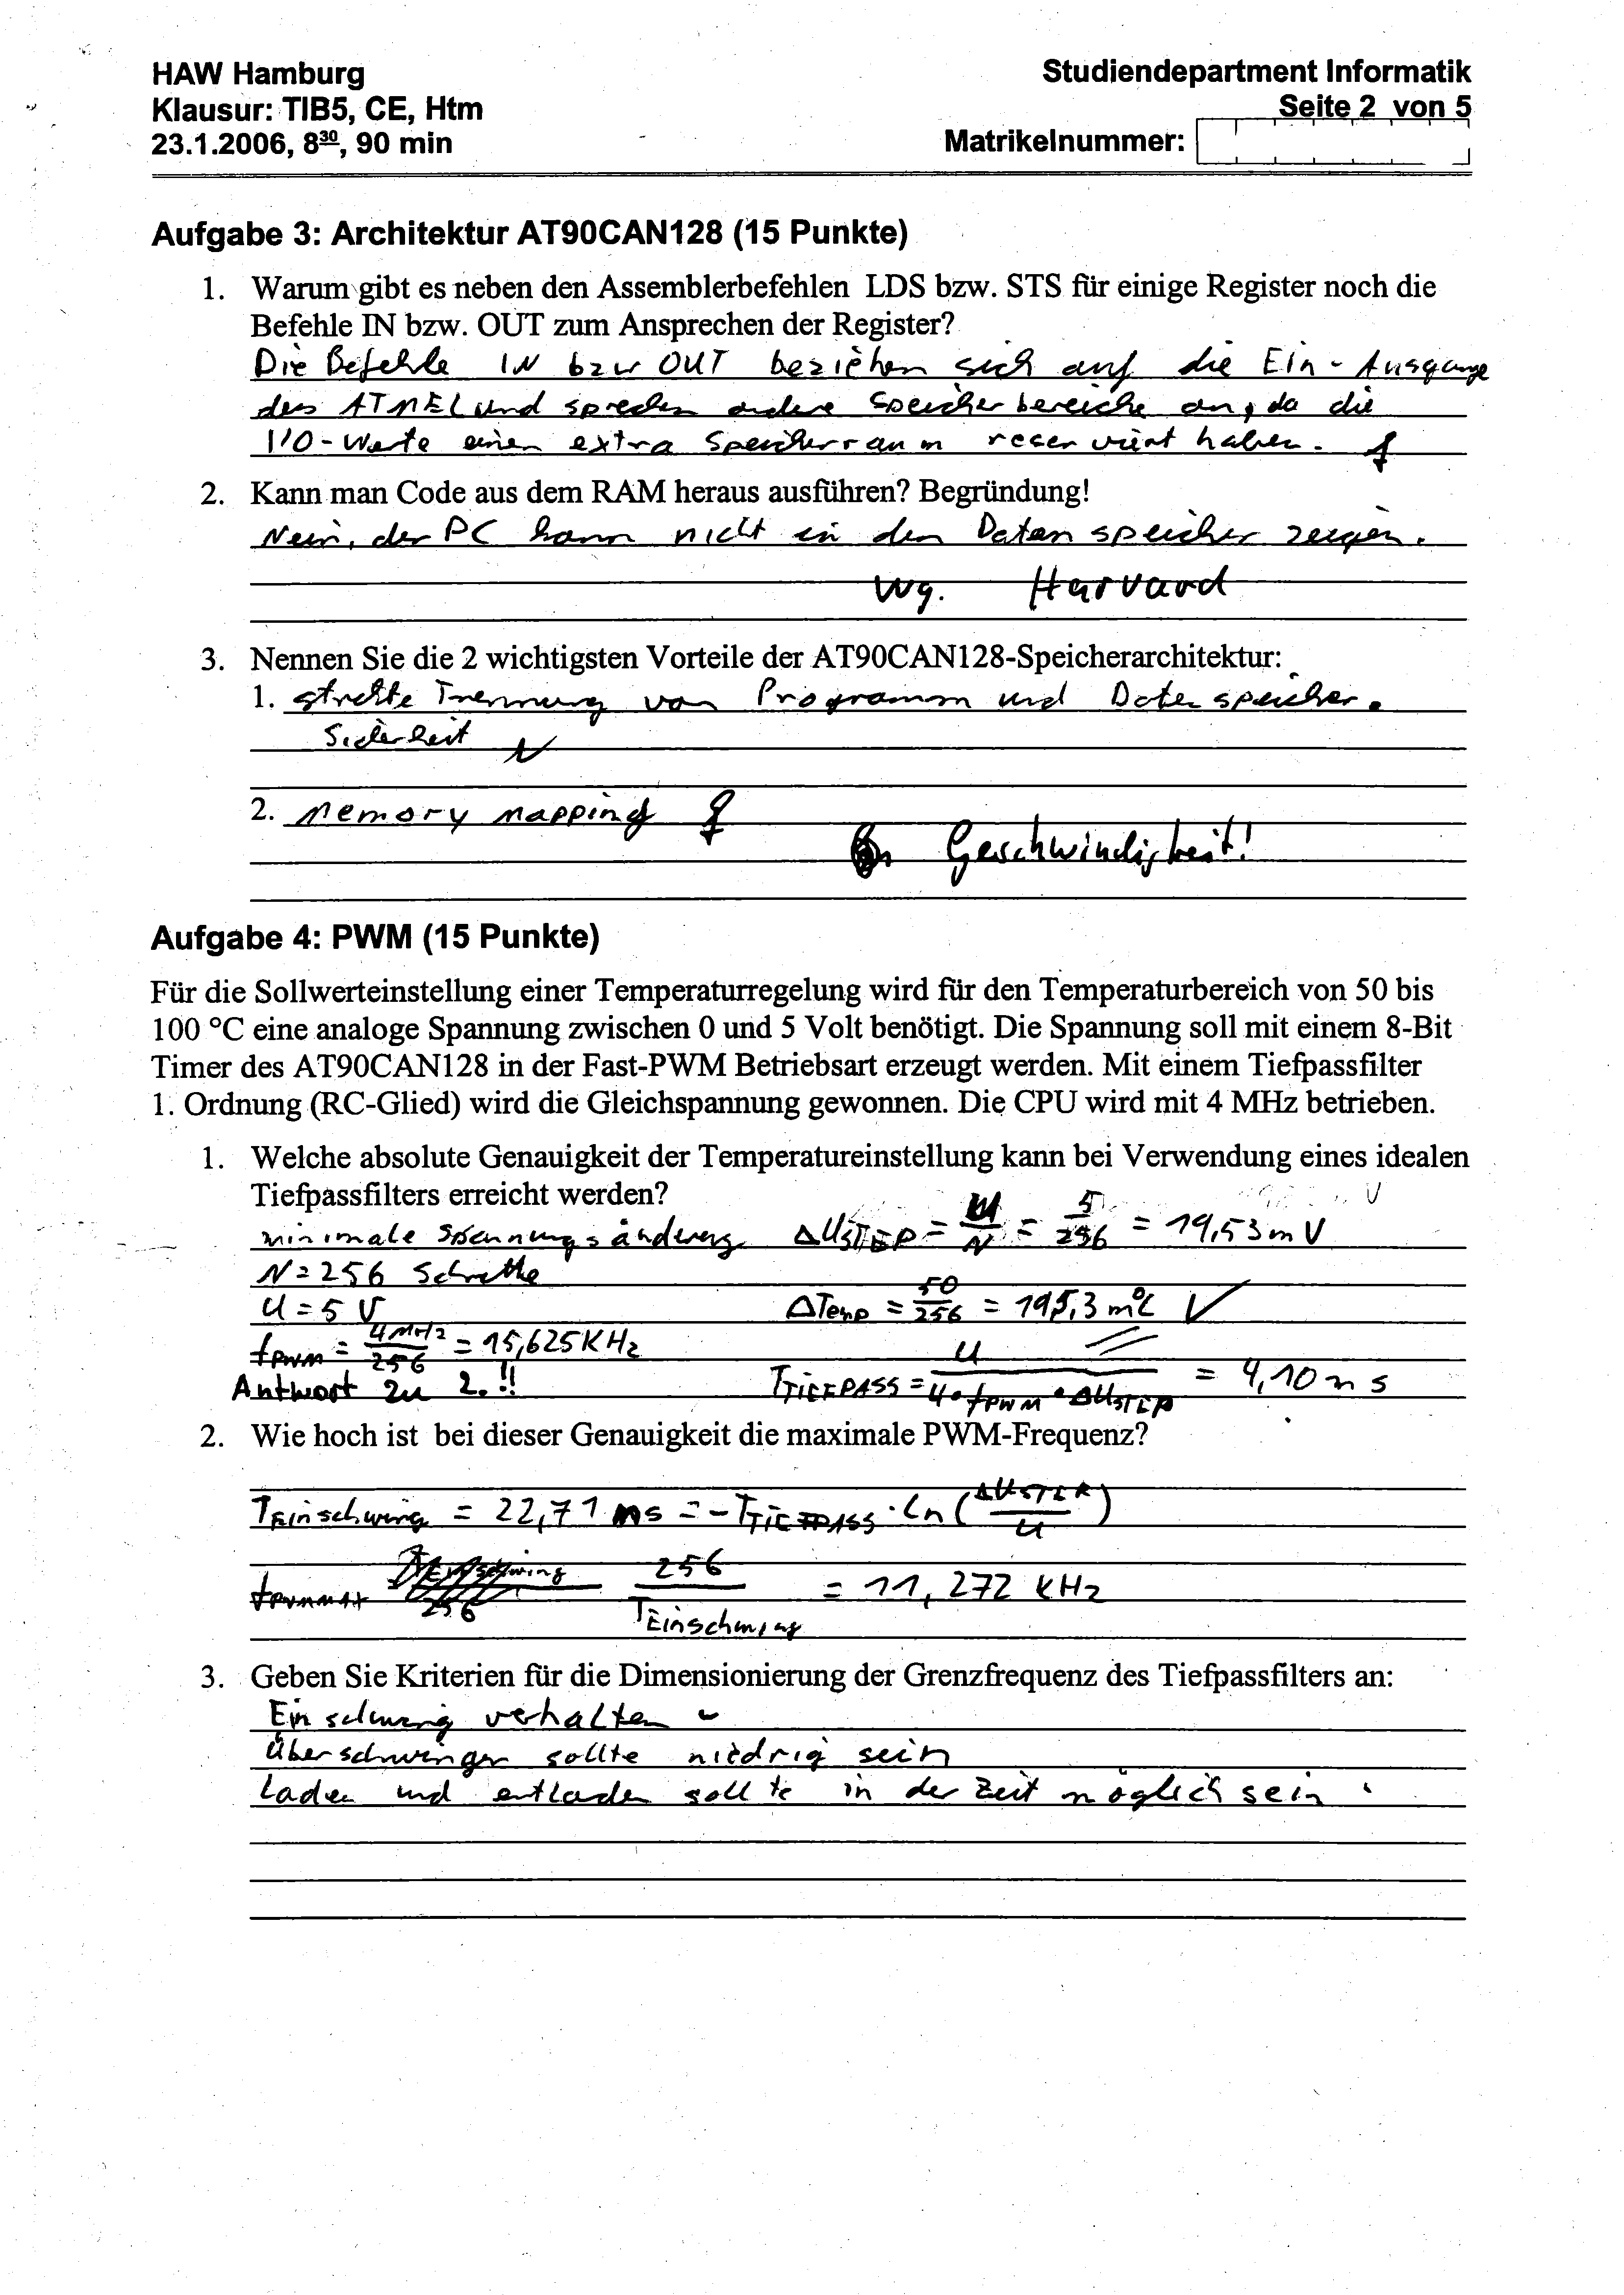 HAW Hamburg
Studiendepartment Informatik
Klausur: TIB5, CE, Htm
Seite 2 von 5
23.1.2006, 8³⁰, 90 min
Matrikelnummer:
Aufgabe 3: Architektur AT90CAN128 (15 Punkte)
1. Warum gibt es neben den Assemblerbefehlen LDS bzw. STS für einige Register noch die
Befehle IN bzw. OUT zum Ansprechen der Register?
Die Befehle IN bzw OUT beziehen sich auf die Ein-Ausgänge
des ATMEL und sprechen andere Speicherbereiche an, da die
I/O-Werte einen extra Speicherraum reserviert haben. f
2. Kann man Code aus dem RAM heraus ausführen? Begründung!
Nein, der PC kann nicht in den Datenspeicher zeigen.
wg. Harvard
3. Nennen Sie die 2 wichtigsten Vorteile der AT90CAN128-Speicherarchitektur:
1. strikte Trennung von Programm und Datenspeicher.
Sicherheit
2. Memory Mapping f
Geschwindigkeit!
Aufgabe 4: PWM (15 Punkte)
Für die Sollwerteinstellung einer Temperaturregelung wird für den Temperaturbereich von 50 bis
100 °C eine analoge Spannung zwischen 0 und 5 Volt benötigt. Die Spannung soll mit einem 8-Bit
Timer des AT90CAN128 in der Fast-PWM Betriebsart erzeugt werden. Mit einem Tiefpassfilter
1. Ordnung (RC-Glied) wird die Gleichspannung gewonnen. Die CPU wird mit 4 MHz betrieben.
1. Welche absolute Genauigkeit der Temperatureinstellung kann bei Verwendung eines idealen
Tiefpassfilters erreicht werden?
minimale Spannungsänderung ΔUSTEP = U/N = 5/256 = 19,53 mV
N = 256 Schritte
U = 5 V ΔTemp = 50/256 = 195,3 m°C ✓
fPWM = 4MHz/256 = 15,625 KHz
Antwort zu 2.!! TTIEFPASS = U/(4 · fPWM · ΔUSTEP) = 4,10 ms
2. Wie hoch ist bei dieser Genauigkeit die maximale PWM-Frequenz?
TEinschwing = 22,71 ms = -TTIEFPASS · Ln(ΔUSTEP/U)
fPWMMAX 256/TEinschwing = 11,272 KHz
3. Geben Sie Kriterien für die Dimensionierung der Grenzfrequenz des Tiefpassfilters an:
Einschwingverhalten
Überschwinger sollte niedrig sein
Laden und entladen sollte in der Zeit möglich sein.